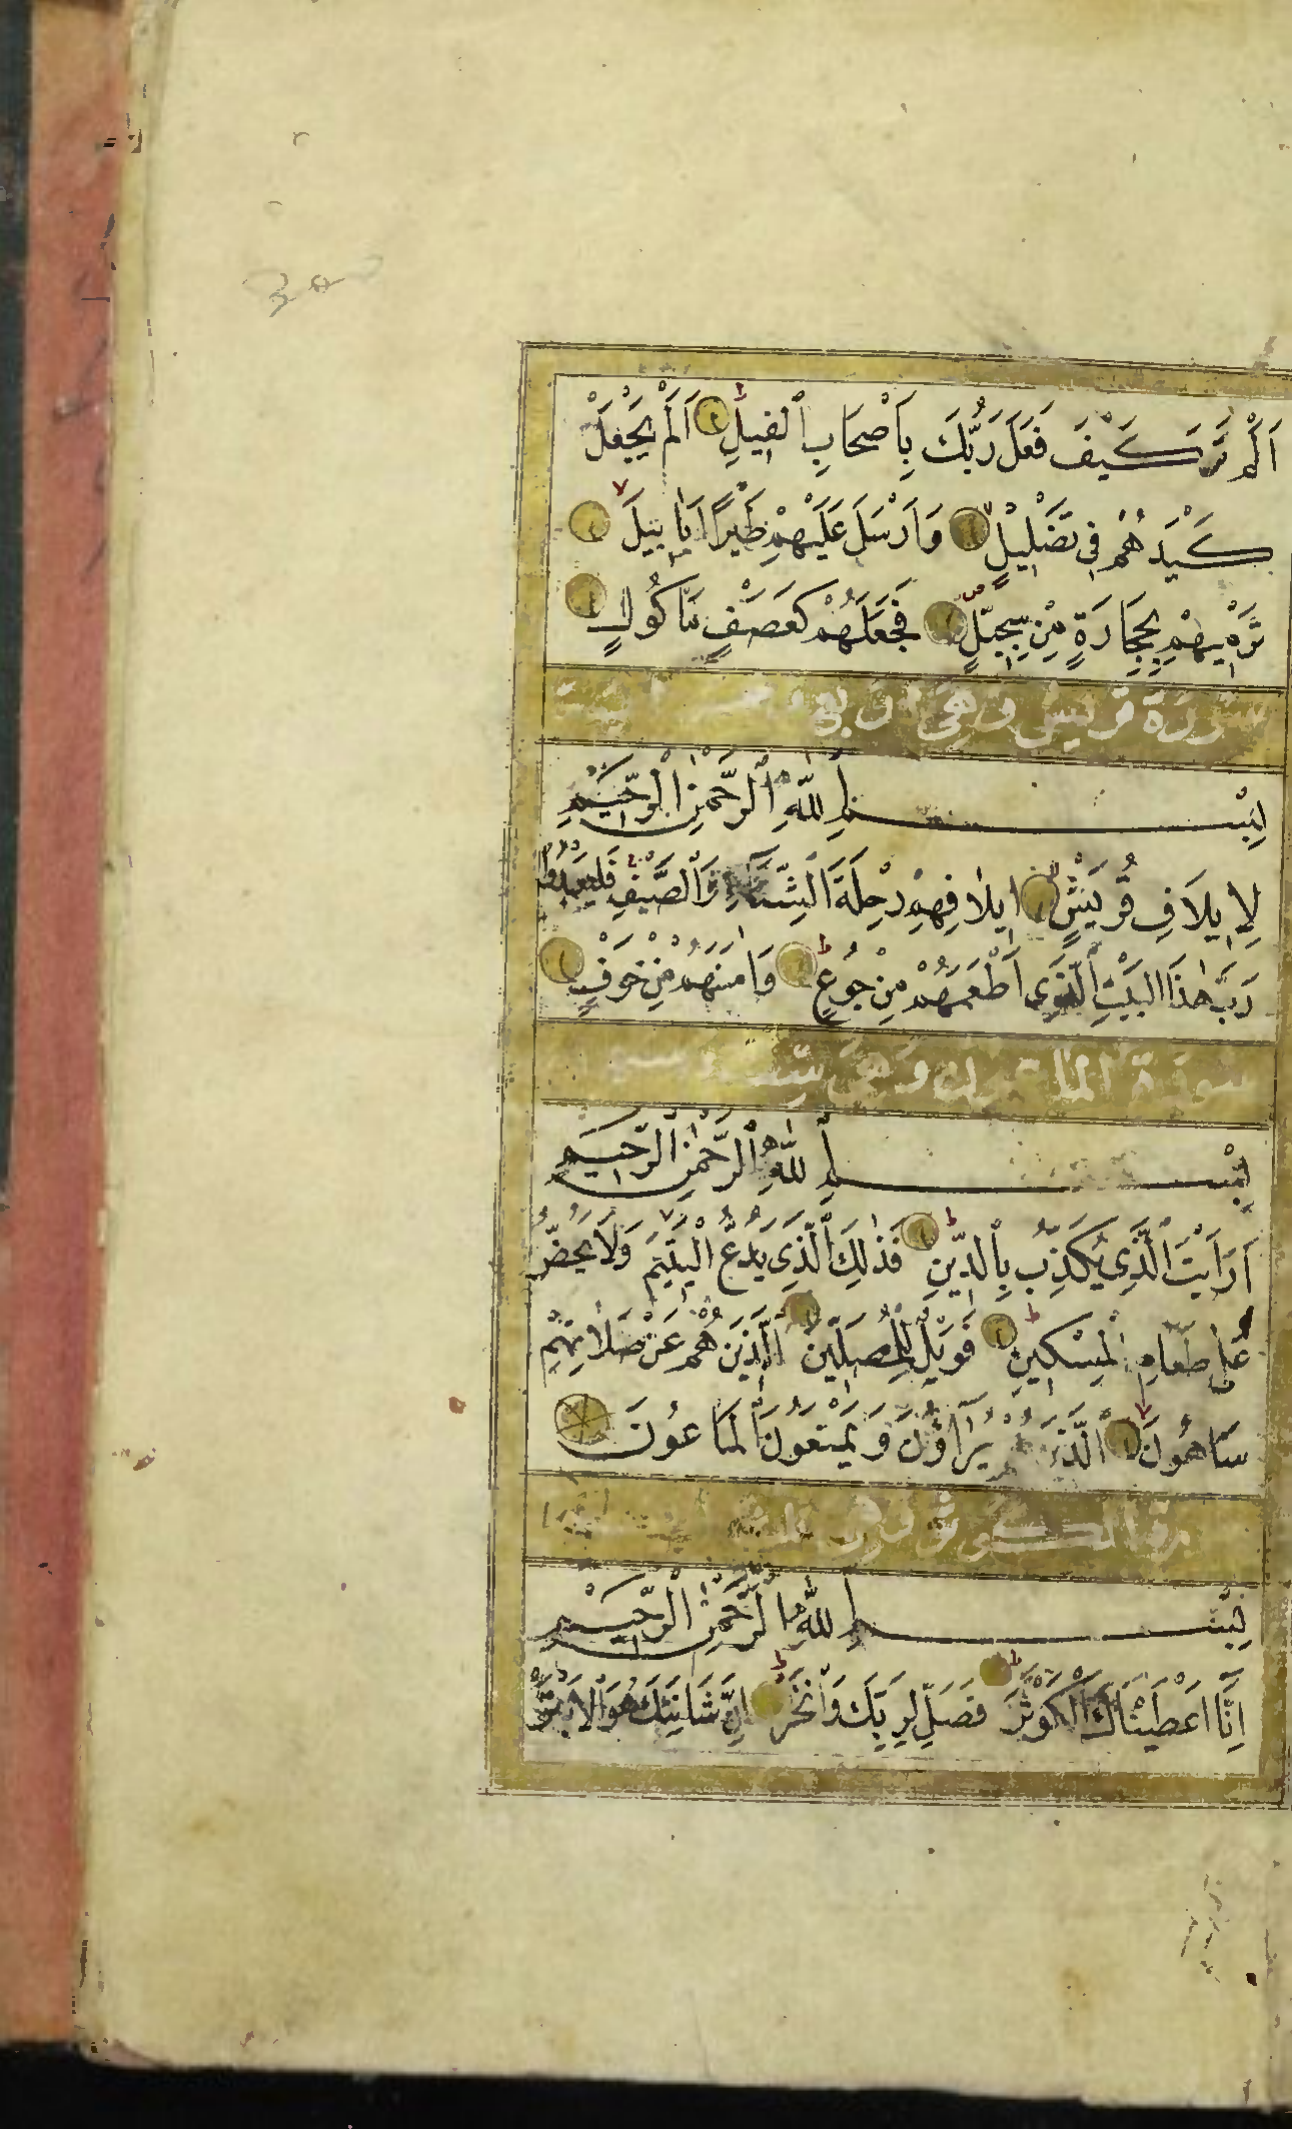 اَلَمْ تَرَ كَيْفَ فَعَلَ رَبُّكَ بِاَصْحَابِ الْفِيلِ اَلَمْ يَجْعَلْ
كَيْدَهُمْ فِى تَضْلِيلٍ وَاَرْسَلَ عَلَيْهِمْ طَيْرًا اَبَابِيلَ
تَرْمِيهِمْ بِحِجَارَةٍ مِنْ سِجِّيلٍ فَجَعَلَهُمْ كَعَصْفٍ مَاْكُولٍ
سورة قريش وهى
بِسْمِ اللّٰهِ الرَّحْمٰنِ الرَّحِيمِ
لِاِيلَافِ قُرَيْشٍ اِيلَافِهِمْ رِحْلَةَ الشِّتَاءِ وَالصَّيْفِ فَلْيَعْبُدُوا
رَبَّ هٰذَا الْبَيْتِ الَّذِى اَطْعَمَهُمْ مِنْ جُوعٍ وَاٰمَنَهُمْ مِنْ خَوْفٍ
سورة الماعون وهى
بِسْمِ اللّٰهِ الرَّحْمٰنِ الرَّحِيمِ
اَرَاَيْتَ الَّذِى يُكَذِّبُ بِالدِّينِ فَذٰلِكَ الَّذِى يَدُعُّ الْيَتِيمَ وَلَا يَحُضُّ
عَلٰى طَعَامِ الْمِسْكِينِ فَوَيْلٌ لِلْمُصَلِّينَ الَّذِينَ هُمْ عَنْ صَلَاتِهِمْ
سَاهُونَ الَّذِينَ هُمْ يُرَاؤُنَ وَيَمْنَعُونَ الْمَاعُونَ
الكوثر وهى
بِسْمِ اللّٰهِ الرَّحْمٰنِ الرَّحِيمِ
اِنَّا اَعْطَيْنَاكَ الْكَوْثَرَ فَصَلِّ لِرَبِّكَ وَانْحَرْ اِنَّ شَانِئَكَ هُوَ الْاَبْتَرُ